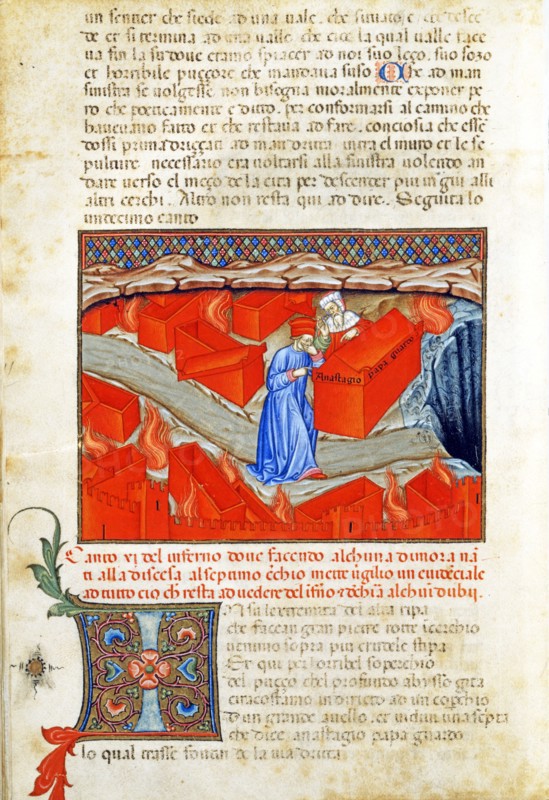 un sentier che siede ad una valle. che
de et si termina ad una valle che la qual valle face
et horribile puzzore che mandava suso Che ad man
sinistra se volgesse non bisegna moralmente exponer pe
ro che poeticamente e ditto. per conformarsi al camino che
havevamo fatto et che restava ad fare. conciosia che esse
dossi prima drizzati ad man dritta intra el muro et le se
pulture. necessario era voltarsi alla sinistra volendo an
dare verso el mezo de la cita per descender piu in giu alli
altri cerchi. Altro non resta qui ad dire. Seguita lo
undecimo canto
Anastagio papa guardo
Canto XI del inferno dove facendo alchuna dimora nan
ti alla discesa al septimo cerchio mette Virgilio un
ad tutto cio ch resta ad vedere del et alchuni dubii.
In su lextremita del alta ripa
che facean gran pietre rotte in cerchio
venimo sopra piu crudele stipa
Et qui per lhorribel soperchio
del puzzo chel profundo abysso gita
ci racostamo in drieto ad un coperchio
dun grande avello. ove vidi una scripta
che dice. anastagio papa guardo
lo qual trasse fotin de la via dritta